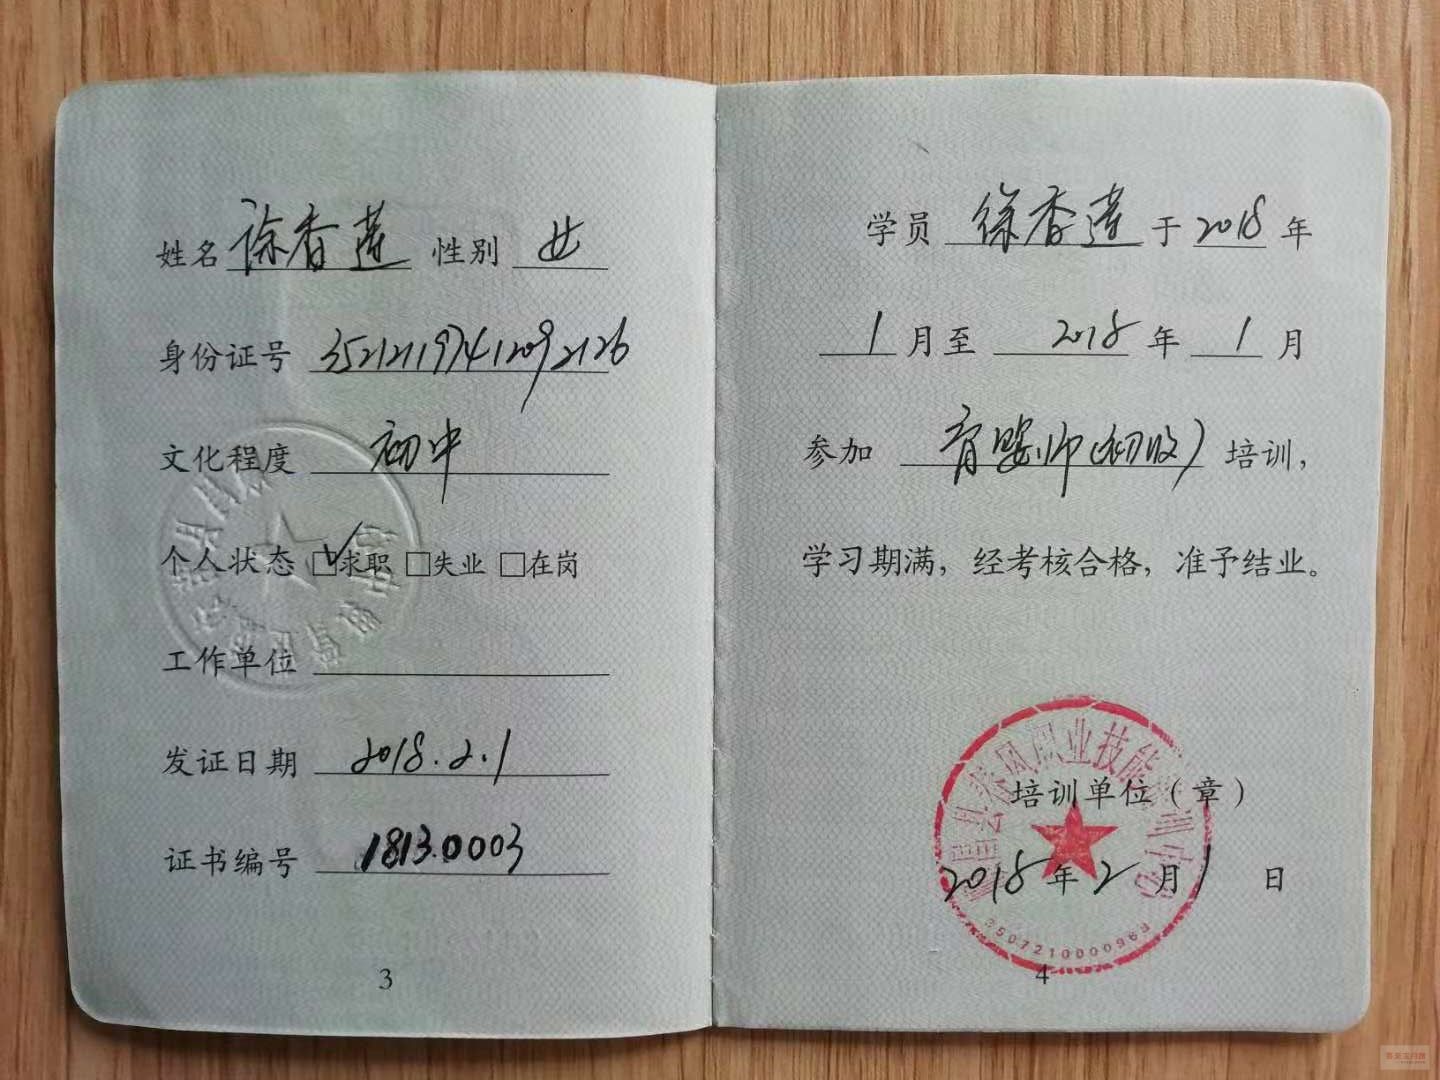 姓名 徐香莲 性别 女
身份证号 352121197412092126
文化程度 初中
个人状态 ☑求职 □失业 □在岗
工作单位
发证日期 2018.2.1
证书编号 1813.0003
3
学员 徐香莲 于 2018 年
1 月至 2018 年 1 月
参加 育婴师(初级) 培训,
学习期满, 经考核合格, 准予结业。
职业技能
培训单位(章)
2018 年 2 月 1 日
4